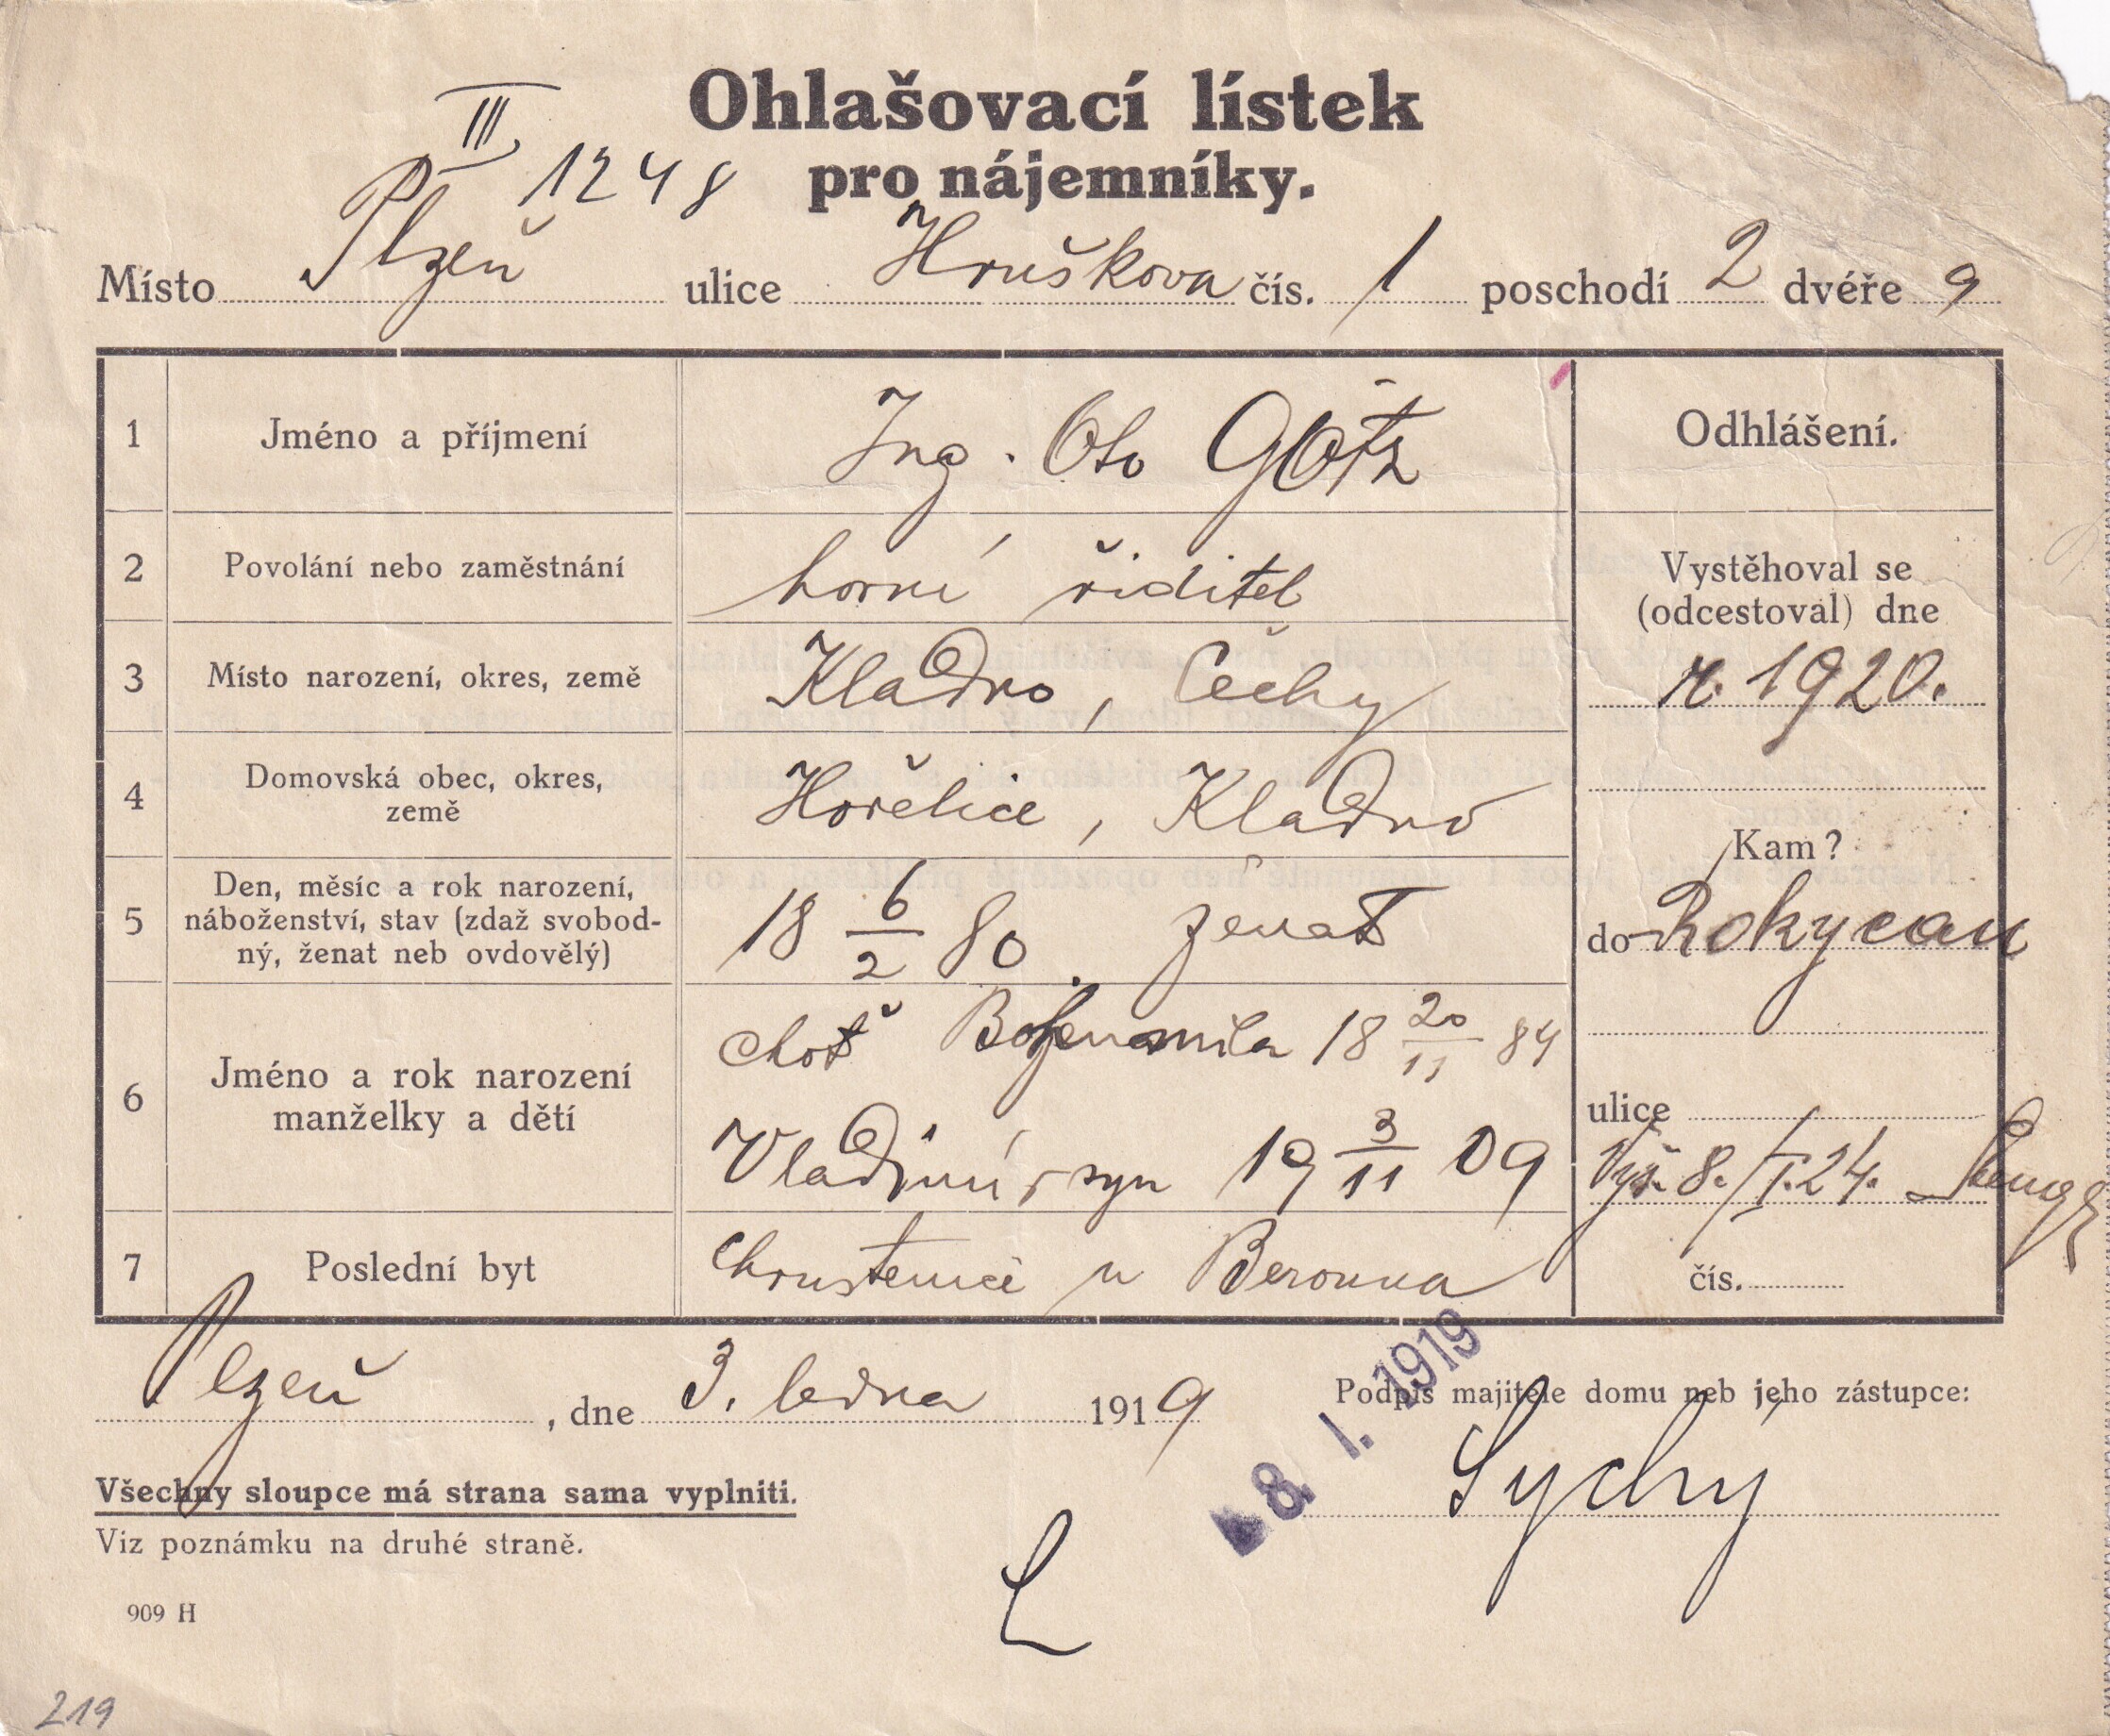 Ohlašovací lístek
pro nájemníky.
III
1248
Místo Plzeň ulice Hruškova čís. 1 poschodí 2 dvéře 9
1 Jméno a příjmení Ing. Oto Götz
2 Povolání nebo zaměstnání horní řiditel
3 Místo narození, okres, země Kladno, Čechy
4 Domovská obec, okres,
země Hořelice, Kladno
5 Den, měsíc a rok narození,
náboženství, stav (zdaž svobod-
ný, ženat neb ovdovělý) 18 6/2 80. ženat
6 Jméno a rok narození
manželky a dětí
choť 18 20/11 84
Vladimír, syn 19 3/11 09
7 Poslední byt Chrustenice u Berouna
Odhlášení.
Vystěhoval se
(odcestoval) dne
r. 1920.
Kam?
do Rokycan
ulice
Vyš. 8./I.24.
čís.
Plzeň, dne 3. ledna 1919
8. I. 1919
Podpis majitele domu neb jeho zástupce:
Sychý
Všechny sloupce má strana sama vyplniti.
Viz poznámku na druhé straně.
L
909 H
219